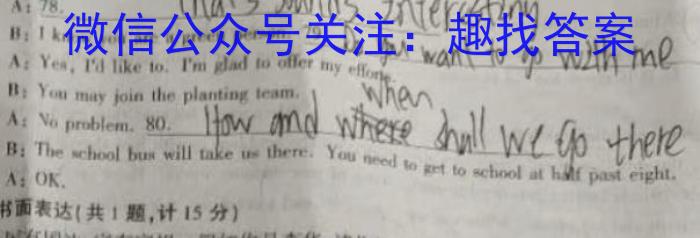 A: 78. That's sounds interesting
微信公众号关注：趣找答案
B: I
want to go with me
A: Yes, I'd like to. I'm glad to offer my effort.
B: You may join the planting team.
when
A: No problem. 80. How and where shall we go there
B: The school bus will take us there. You need to get to school at half past eight.
A: OK.
书面表达(共1题,计15分)